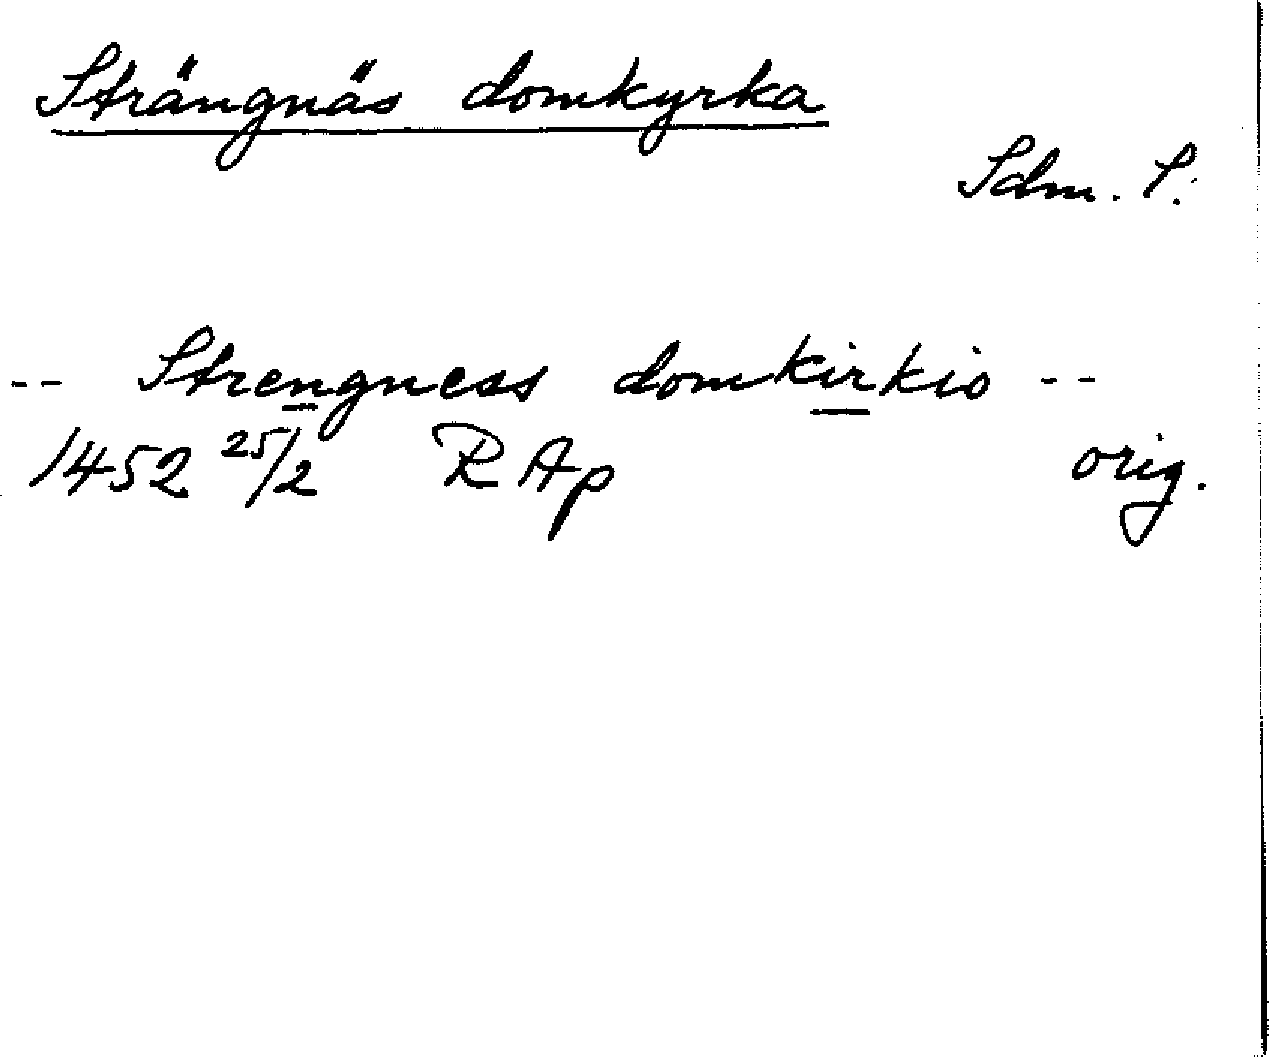 Strängnäs domkyrka
Sdm. S.
-- Strengness domkirkio --
1452 25/2 RAp orig.